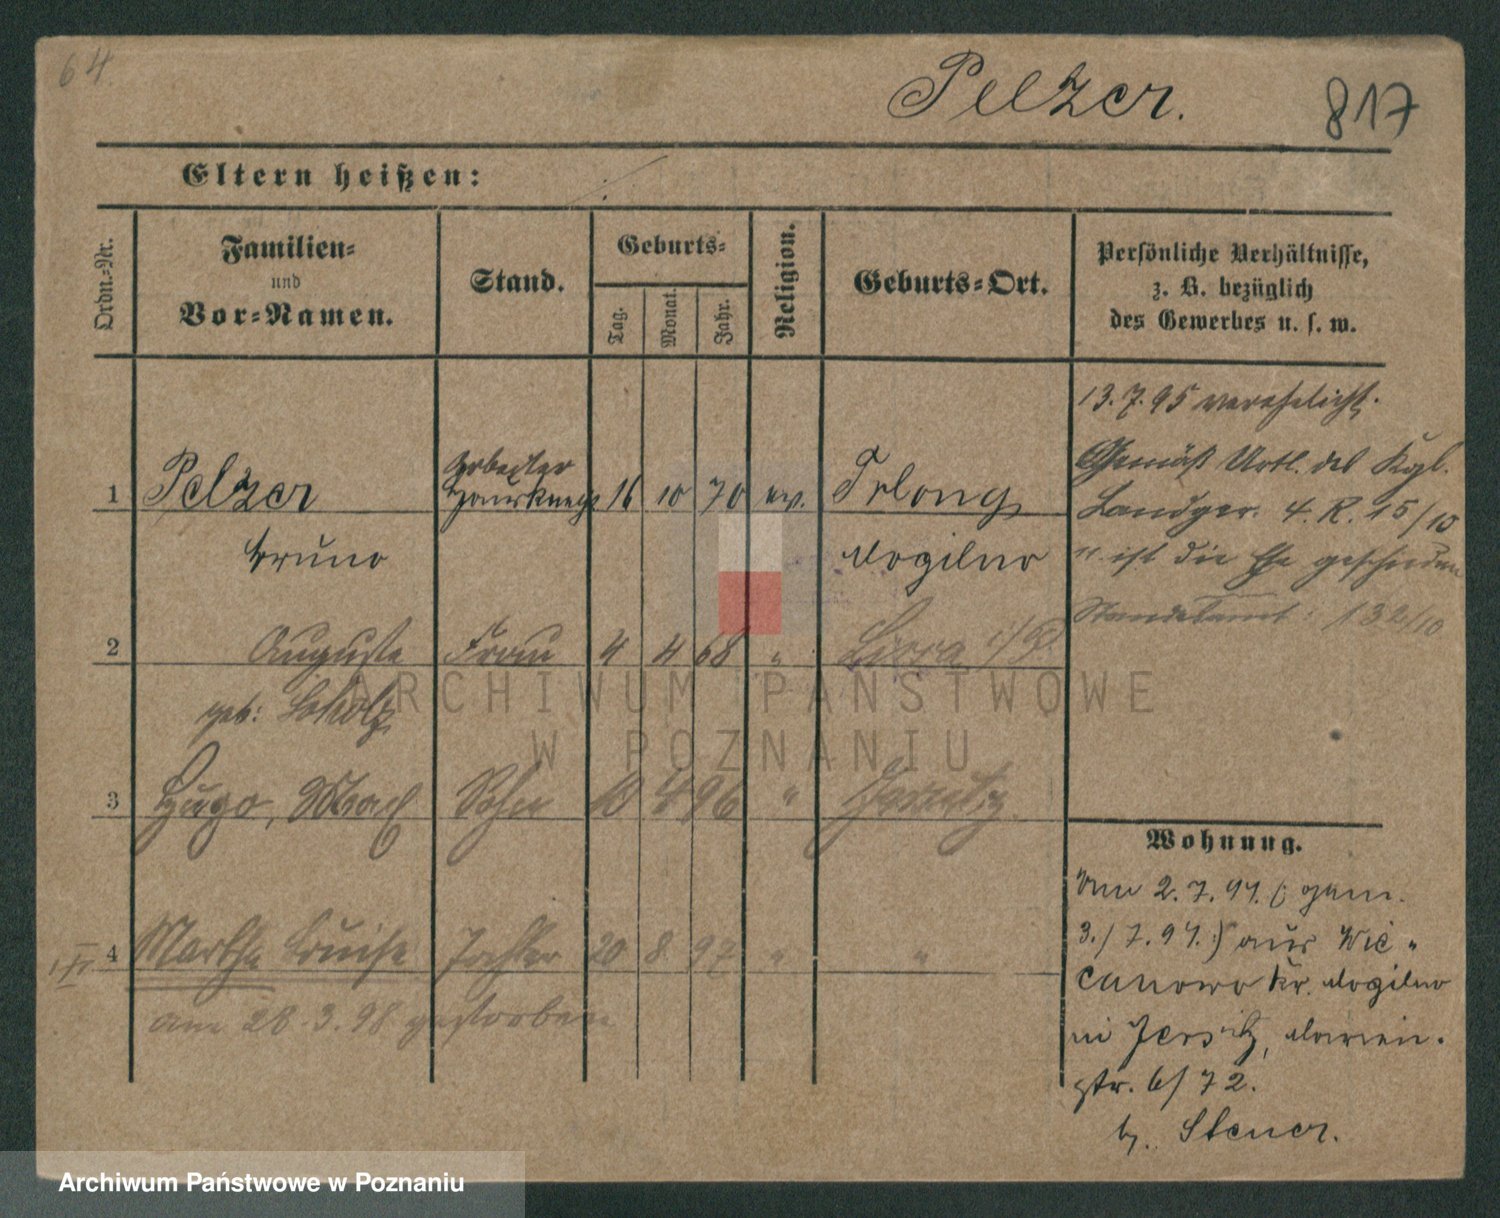 64.
Pelzer.
817
Eltern heißen:
Ordn.-Nr.
Familien-
und
Vor-Namen.
Stand.
Geburts-
Tag.
Monat.
Jahr.
Religion.
Geburts-Ort.
Persönliche Verhältnisse,
z. B. bezüglich
des Gewerbes u. s. w.
13.7.95 verehelicht.
Gemäß Urtl. des Kgl.
Landger. 4. R. 15/10
ist die Ehe geschieden
Standesamt: 132/10
Arbeiter
1 Pelzer Hausknecht 16 10 70 ev. Orlong
Bruno Mogilno
2 Auguste Frau 4 4 68 " Lissa i/P.
geb. Scholz
3 Hugo, Max Sohn 10 4 96 " Jersitz.
4 Martha Luise Tochter 20 8 97 " "
am 28.3.98 gestorben
Wohnung.
Am 2.7.94. (gem.
3./7.94.) aus Wie
canowo Kr. Mogilno
in Jersitz, Marien-
str. 6/72.
b. Steuer.
ARCHIWUM PAŃSTWOWE
W POZNANIU
Archiwum Państwowe w Poznaniu